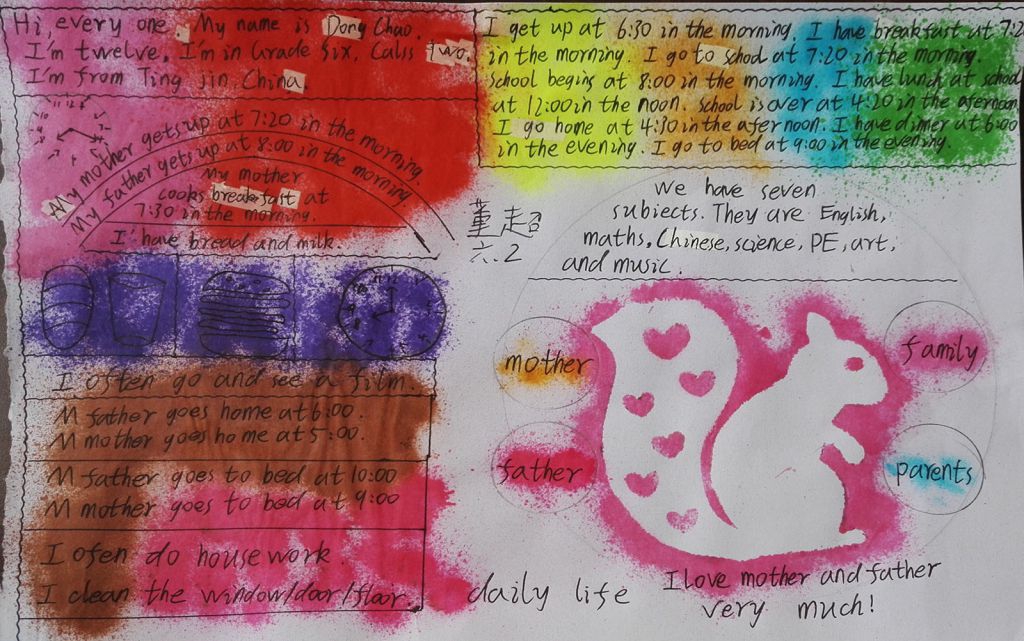 Hi, every one. My name is Dong Chao.
I'm twelve. I'm in Grade Six, Calss two.
I'm from Ting jin, China.
My mother gets up at 7:20 in the morning
My father gets up at 8:00 in the morning
My mother
cooks breakfast at
7:30 in the morning.
I have bread and milk.
I often go and see a film.
M father goes home at 6:00.
M mother goes home at 5:00.
M father goes to bed at 10:00
M mother goes to bed at 9:00
I ofen do housework.
I clean the window/door/flair.
I get up at 6:30 in the morning. I have breakfast at 7:2
in the morning. I go to schod at 7:20 in the morning.
school begins at 8:00 in the morning. I have lunch at school
at 12:00 in the noon. school is over at 4:20 in the afernoon
I go home at 4:30 in the afernoon. I have dinner at 6:00
in the evening. I go to bed at 9:00 in the evening.
董超
六.2
we have seven
subiects. They are English,
maths, Chinese, science, PE, art,
and music.
mother
family
father
parents
daily life
I love mother and father
very much!